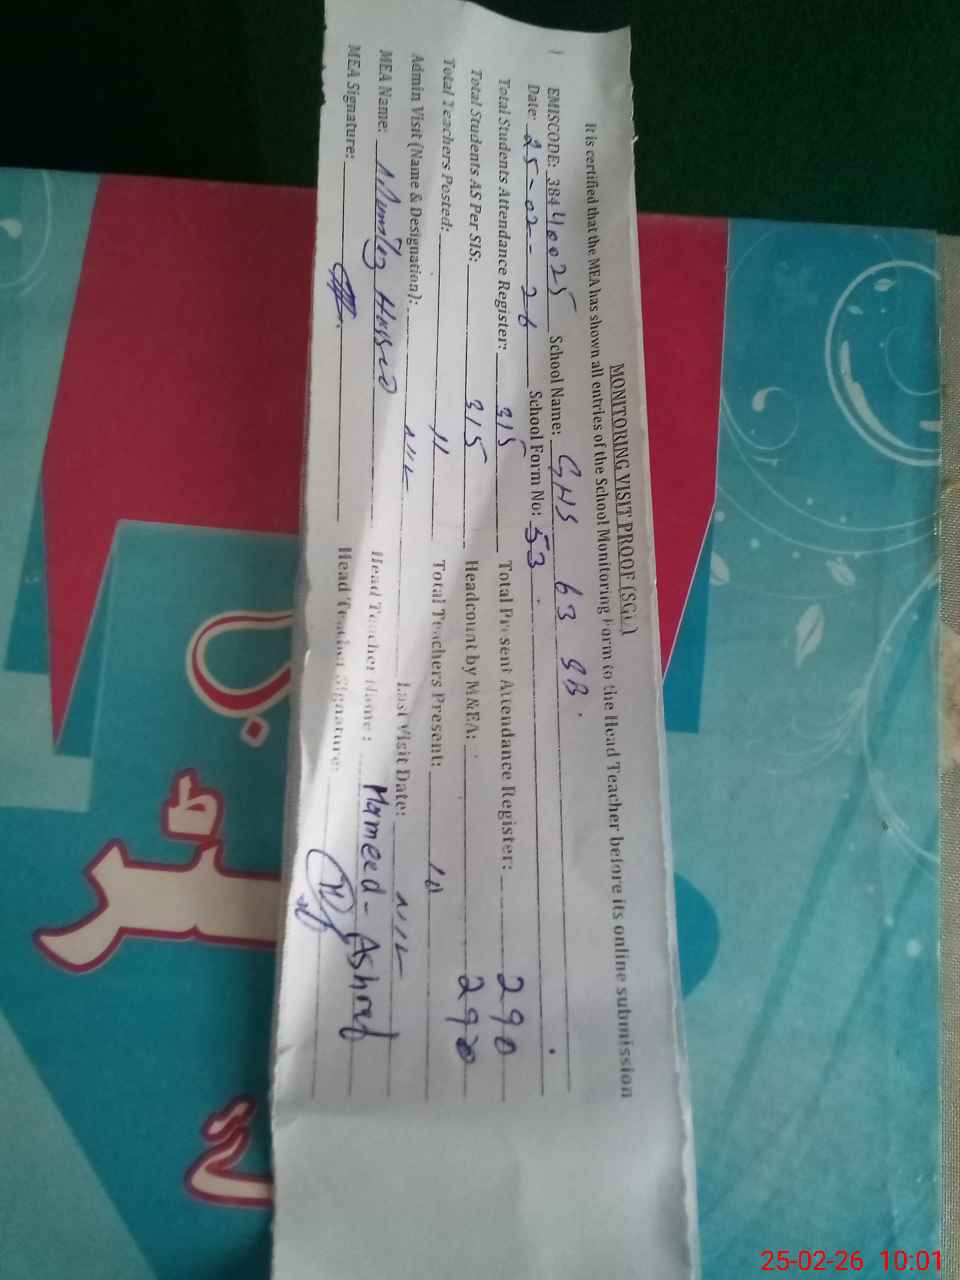 MONITORING VISIT PROOF (SGD)
It is certified that the MEA has shown all entries of the School Monitoring Form to the Head Teacher before its online submission
EMISCODE: 38440025 School Name: GHS 63 SB.
Date: 25-02-26 School Form No: 53
Total Students Attendance Register: 315 Total Present Attendance Register: 290
Total Students AS Per SIS: 315 Headcount by M&EA: 290
Total Teachers Posted: 11 Total Teachers Present: 10
Admin Visit (Name & Designation): NIL Last Visit Date: NIL
MEA Name: Head Teacher Name: Hameed Ashraf
MEA Signature: Head Teacher Signature:
25-02-26 10:01